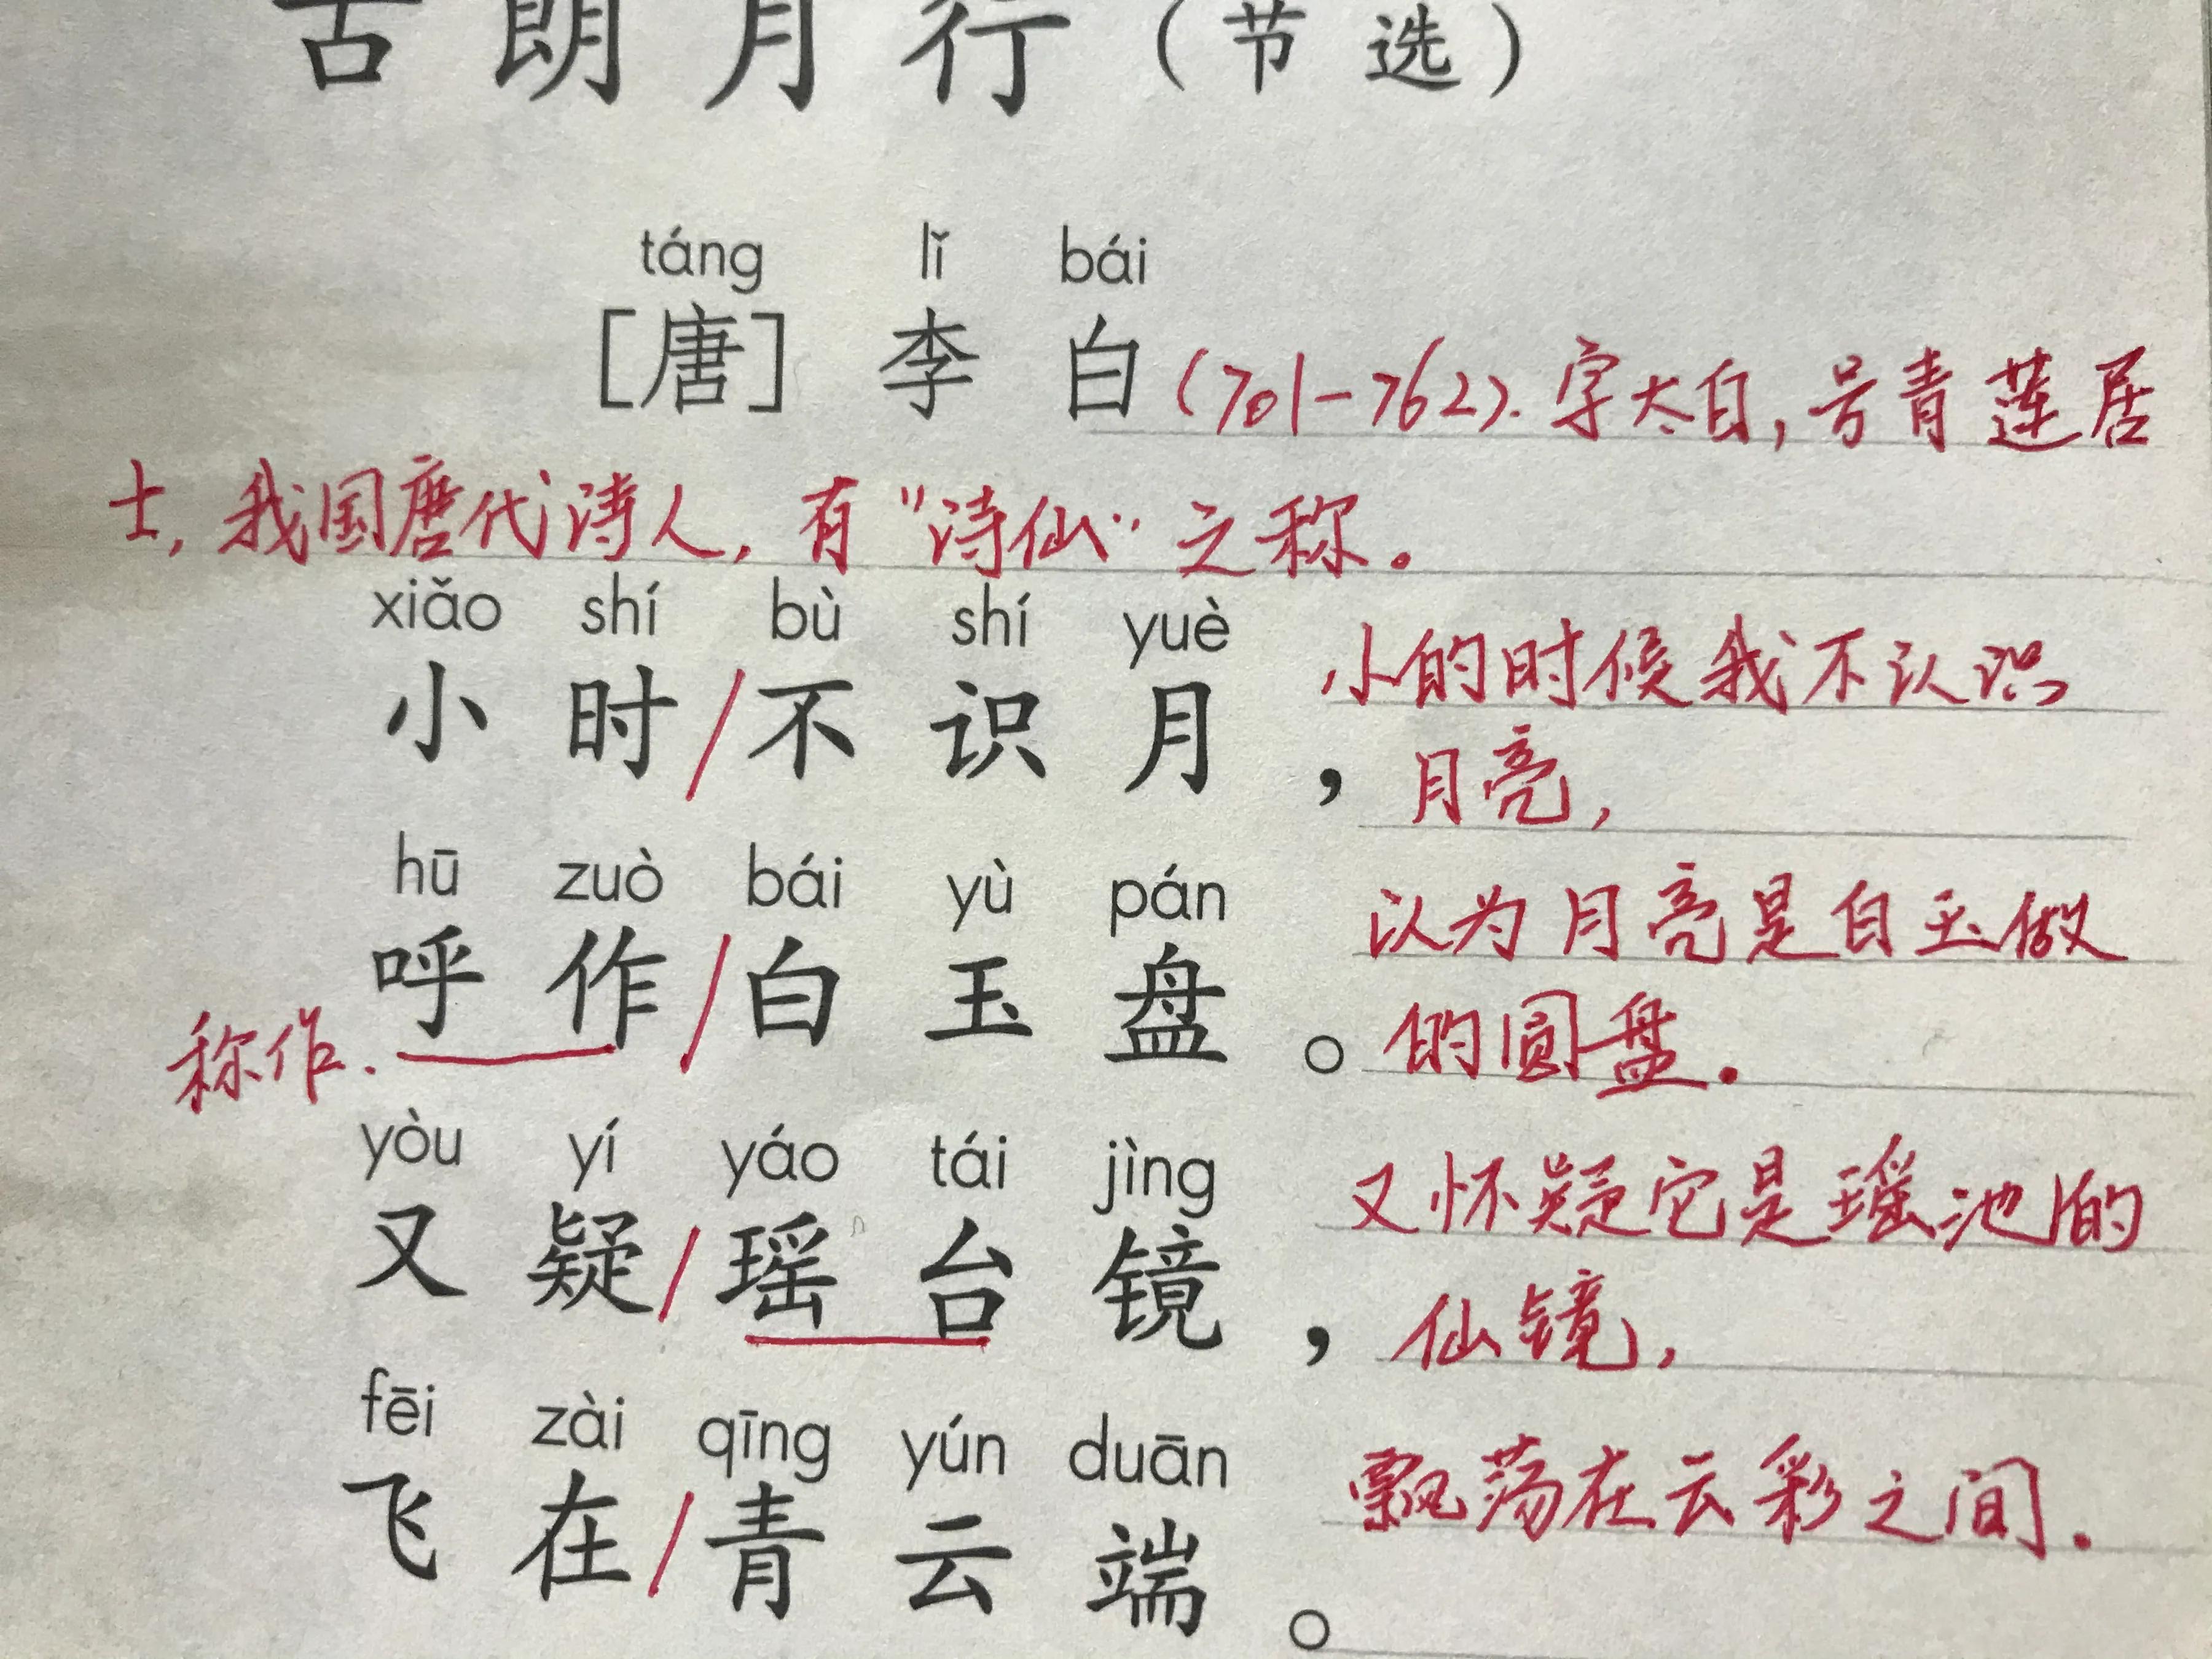 古朗月行（节选）
táng lǐ bái
[唐] 李白(701-762).字太白,号青莲居
士,我国唐代诗人,有"诗仙"之称。
xiǎo shí bù shí yuè
小时/不识月， 小的时候我不认识
月亮,
hū zuò bái yù pán
呼作/白玉盘。 认为月亮是白玉做
称作. 的圆盘.
yòu yí yáo tái jìng
又疑/瑶台镜， 又怀疑它是瑶池的
仙镜,
fēi zài qīng yún duān
飞在/青云端。 飘荡在云彩之间.